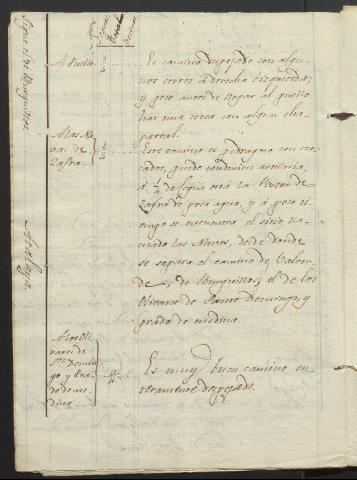 Sigue el de Burguillos
Atalaya
A Puebla
3/4
Es camino despejado con algu-
nos cerros a derecha e izquierda;
y poco antes de llegar al pueblo
hai una cerca con algun cha-
parral.
A las Na-
vas de
Zafra
1/4
Este camino es pedregoso con cer-
cados, puede conducirse artilleria,
á 1/4 de legua está la Rivera de
Zafra de poca agua, y á poco ti-
empo se encuentra el sitio lla-
mado las Navas, desde donde
se separa el camino de Valver-
de de Burguillos; el de los
Olivares de Santo Domingo, y
prado de medina.
A los Oli-
vares de
Sto. Domin-
go y Pra-
do de me-
dina
Es muy buen camino en-
teramente despejado.